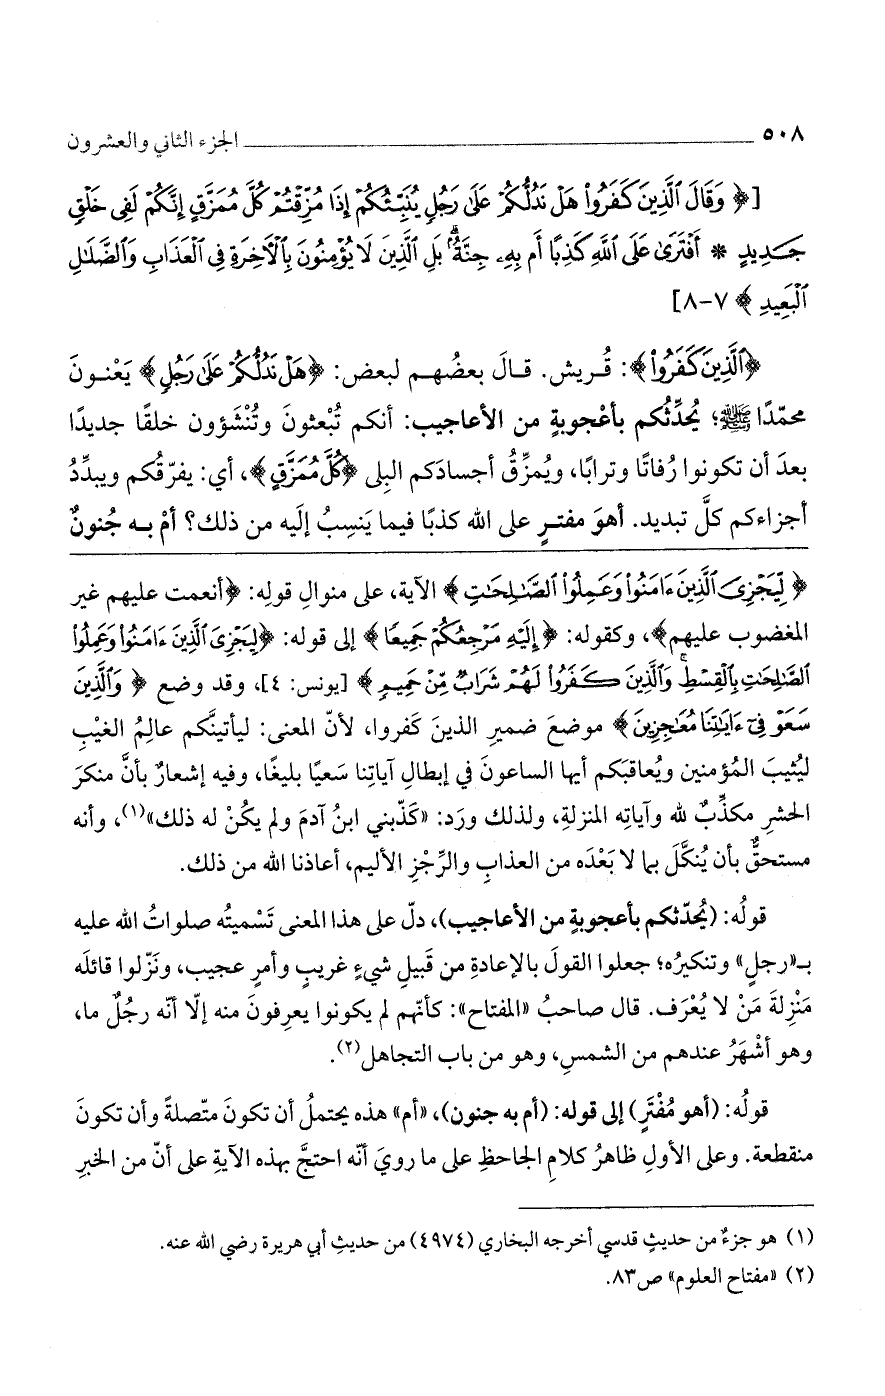 ٥٠٨ الجزء الثاني والعشرون
[﴿ وَقَالَ ٱلَّذِينَ كَفَرُواْ هَلْ نَدُلُّكُمْ عَلَىٰ رَجُلٍ يُنَبِّئُكُمْ إِذَا مُزِّقْتُمْ كُلَّ مُمَزَّقٍ إِنَّكُمْ لَفِى خَلْقٍ
جَدِيدٍ * أَفْتَرَىٰ عَلَى ٱللَّهِ كَذِبًا أَم بِهِۦ جِنَّةٌۢ بَلِ ٱلَّذِينَ لَا يُؤْمِنُونَ بِٱلْآخِرَةِ فِى ٱلْعَذَابِ وَٱلضَّلَٰلِ
ٱلْبَعِيدِ ﴾ ٧-٨]
﴿ٱلَّذِينَ كَفَرُواْ﴾: قُريش. قالَ بعضُهم لبعض: ﴿هَلْ نَدُلُّكُمْ عَلَىٰ رَجُلٍ﴾ يَعْنونَ
محمّدًا ﷺ؛ يُحدِّثُكم بأعْجوبةٍ من الأعاجيب: أنكم تُبْعثونَ وتُنْشَؤون خلقًا جديدًا
بعدَ أن تكونوا رُفاتًا وترابًا، ويُمزِّقُ أجسادَكم البِلى ﴿كُلَّ مُمَزَّقٍ﴾، أي: يفرّقُكم ويبدِّدُ
أجزاءكم كلَّ تبديد. أهوَ مفترٍ على الله كذبًا فيما يَنسِبُ إلَيه من ذلك؟ أمْ به جُنونٌ
﴿ لِّيَجْزِىَ ٱلَّذِينَ ءَامَنُواْ وَعَمِلُواْ ٱلصَّٰلِحَٰتِ ﴾ الآية، على منوالِ قولِه: ﴿أنعمت عليهم غير
المغضوب عليهم﴾، وكقوله: ﴿ إِلَيْهِ مَرْجِعُكُمْ جَمِيعًا ﴾ إلى قوله: ﴿لِيَجْزِىَ ٱلَّذِينَ ءَامَنُواْ وَعَمِلُواْ
ٱلصَّٰلِحَٰتِ بِٱلْقِسْطِ ۚ وَٱلَّذِينَ كَفَرُواْ لَهُمْ شَرَابٌ مِّنْ حَمِيمٍ ﴾ [يونس: ٤]، وقد وضع ﴿ وَٱلَّذِينَ
سَعَوْ فِىٓ ءَايَٰتِنَا مُعَٰجِزِينَ ﴾ موضعَ ضميرِ الذينَ كَفروا، لأنّ المعنى: ليأتينَّكم عالِمُ الغيْبِ
ليُثيبَ المُؤمنين ويُعاقبَكم أيها الساعونَ في إبطالِ آياتِنا سَعيًا بليغًا، وفيه إشعارٌ بأنَّ منكرَ
الحشرِ مكذِّبٌ لله وآياتِه المنزلةِ، ولذلك ورَد: «كَذّبني ابنُ آدمَ ولم يكُنْ له ذلك»(١)، وأنه
مستحقٌّ بأن يُنكَّلَ بما لا بَعْدَه من العذابِ والرِّجْزِ الأليم، أعاذنا الله من ذلك.
قولُه: (يُحدّثكم بأعجوبةٍ من الأعاجيب)، دلّ على هذا المعنى تَسْميتُه صلواتُ الله عليه
بـ«رجلٍ» وتنكيرُه؛ جعلوا القولَ بالإعادةِ من قَبيلِ شيءٍ غريبٍ وأمرٍ عجيب، ونَزّلوا قائلَه
مَنْزِلةَ مَنْ لا يُعْرَف. قال صاحبُ «المفتاح»: كأنّهم لم يكونوا يعرِفونَ منه إلّا أنّه رجُلٌ ما،
وهو أشْهَرُ عندهم من الشمسِ، وهو من باب التجاهل(٢).
قولُه: (أهو مُفْتَرٍ) إلى قوله: (أم به جنون)، «أم» هذه يحتملُ أن تكونَ متّصلةً وأن تكونَ
منقطعة. وعلى الأولِ ظاهرُ كلامِ الجاحظِ على ما رويَ أنّه احتجَّ بهذه الآيةِ على أنّ من الخبرِ
(١) هو جزءٌ من حديثٍ قدسي أخرجه البخاري (٤٩٧٤) من حديثِ أبي هريرة رضي الله عنه.
(٢) «مفتاح العلوم» ص٨٣.